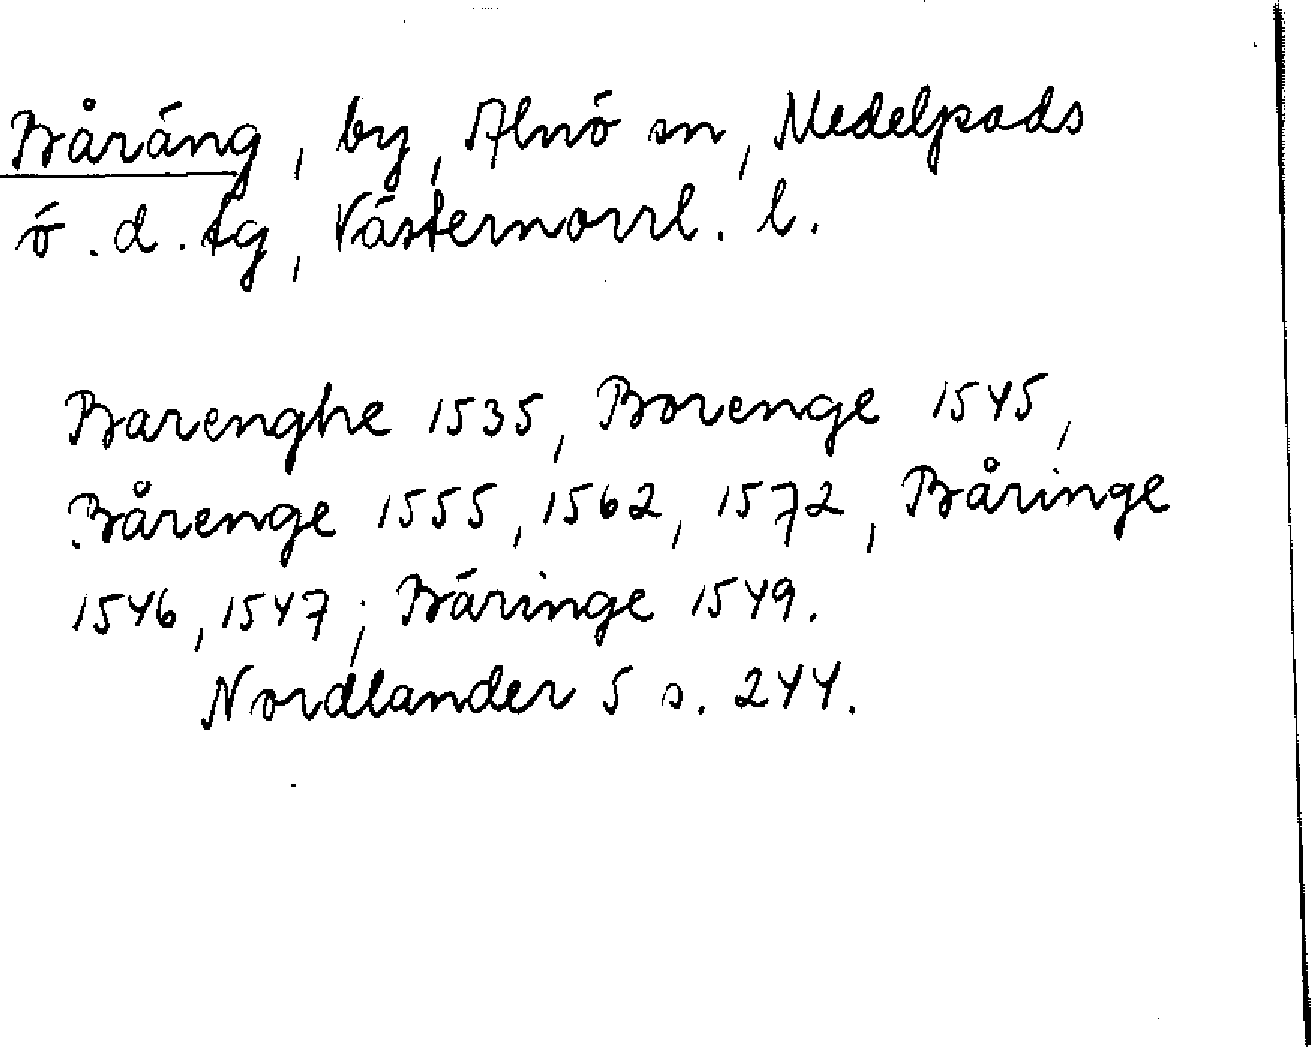 Båräng, by, Alnö sn, Medelpads
ö. d. tg, Västernorrl. l.
Barenghe 1535, Borenge 1545,
Bårenge 1555, 1562, 1572, Båringe
1546, 1547; Bäringe 1549.
Nordlander 5 s. 244.